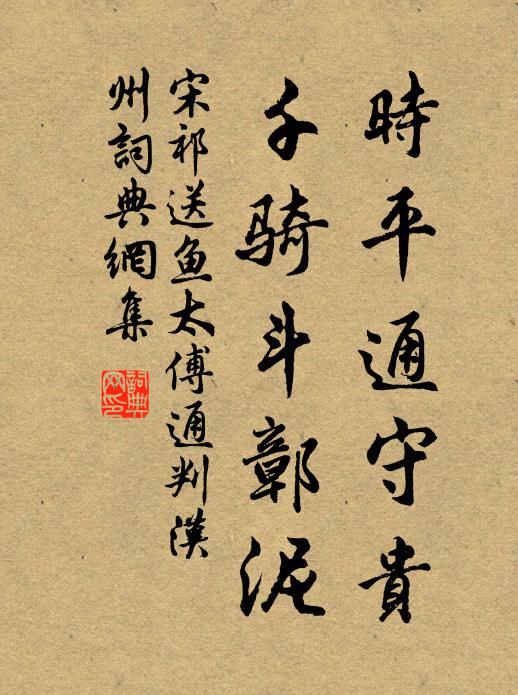 時平通守貴
千骑斗鄣泥
宋祁送鱼太傅通判漢
州詞典網集
詞典
网印